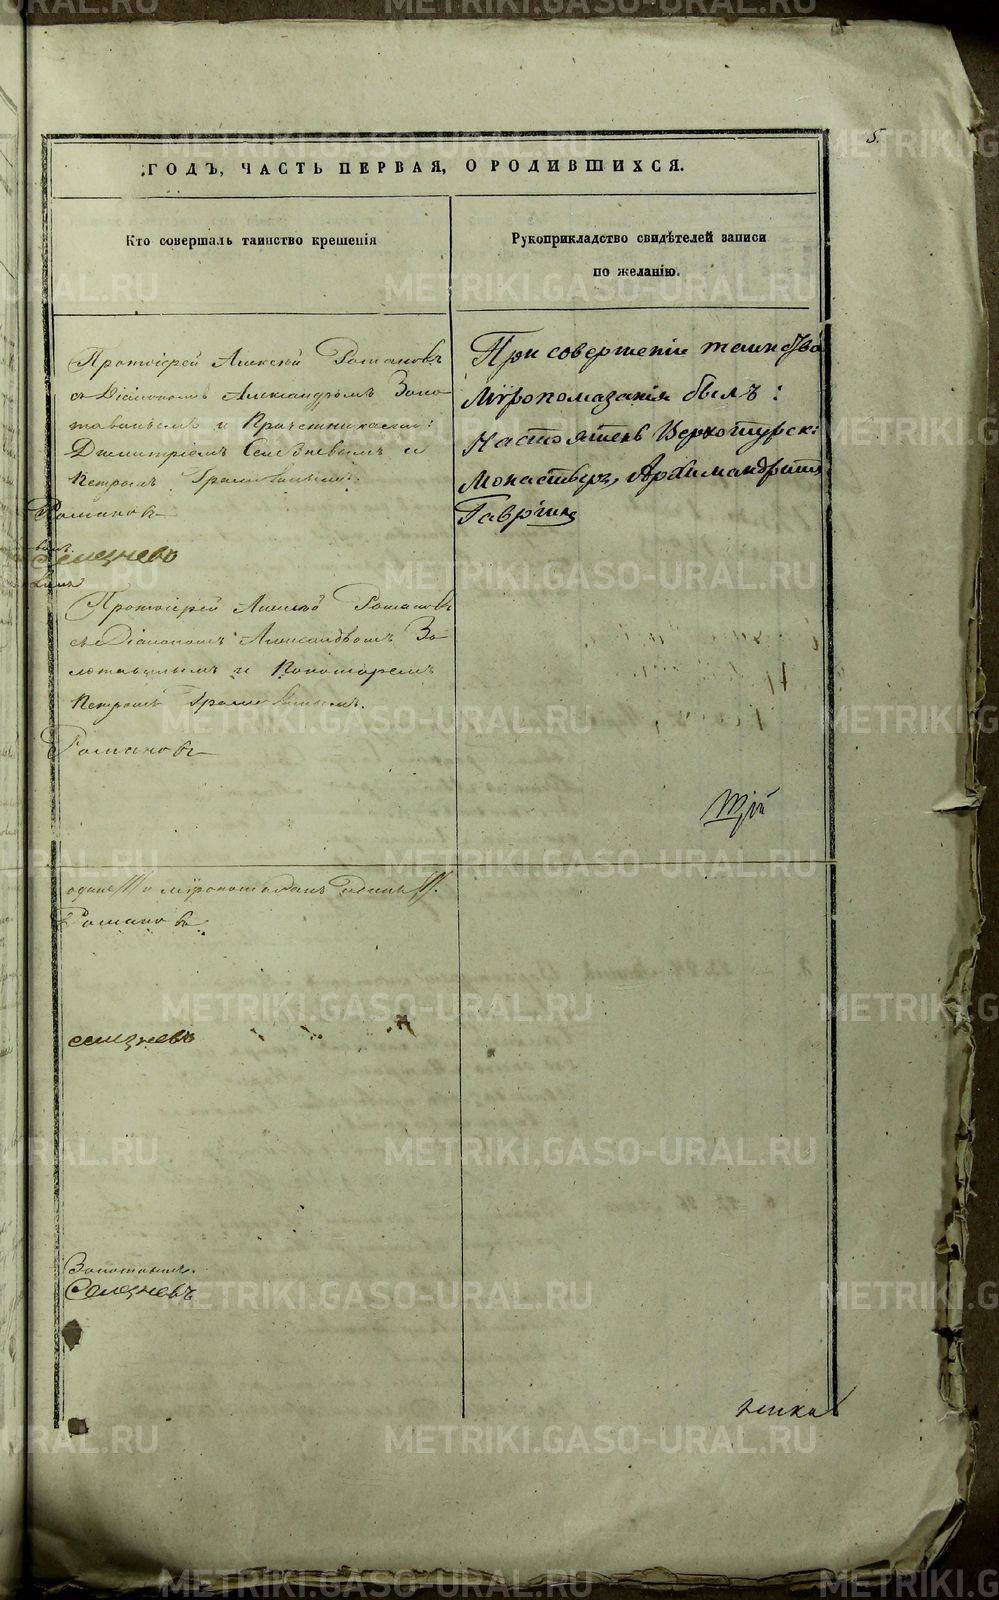 5.
ГОДЪ, ЧАСТЬ ПЕРВАЯ, О РОДИВШИХСЯ.
Кто совершалъ таинство крещенія
Рукоприкладство свидѣтелей записи
по желанію.
Протоіерей Алексій Романовъ
съ Діакономъ Александромъ Золо
тавинымъ и Причетниками:
Димитріемъ Селезневымъ и
Петромъ
Романовъ
Селезневъ
При совершеніи таинства
Мѵропомазанія былъ:
Настоятель Верхотурск:
Монастыря, Архимандритъ
Гавріилъ
Протоіерей Алексій Романовъ
съ Діакономъ Александромъ Зо
лотавинымъ и Пономаремъ
Петромъ
Романовъ
одинъ и мѵропомазанъ одинъ
Романовъ
Селезневъ
Золотавинъ.
Селезневъ
METRIKI.GASO-URAL.RU